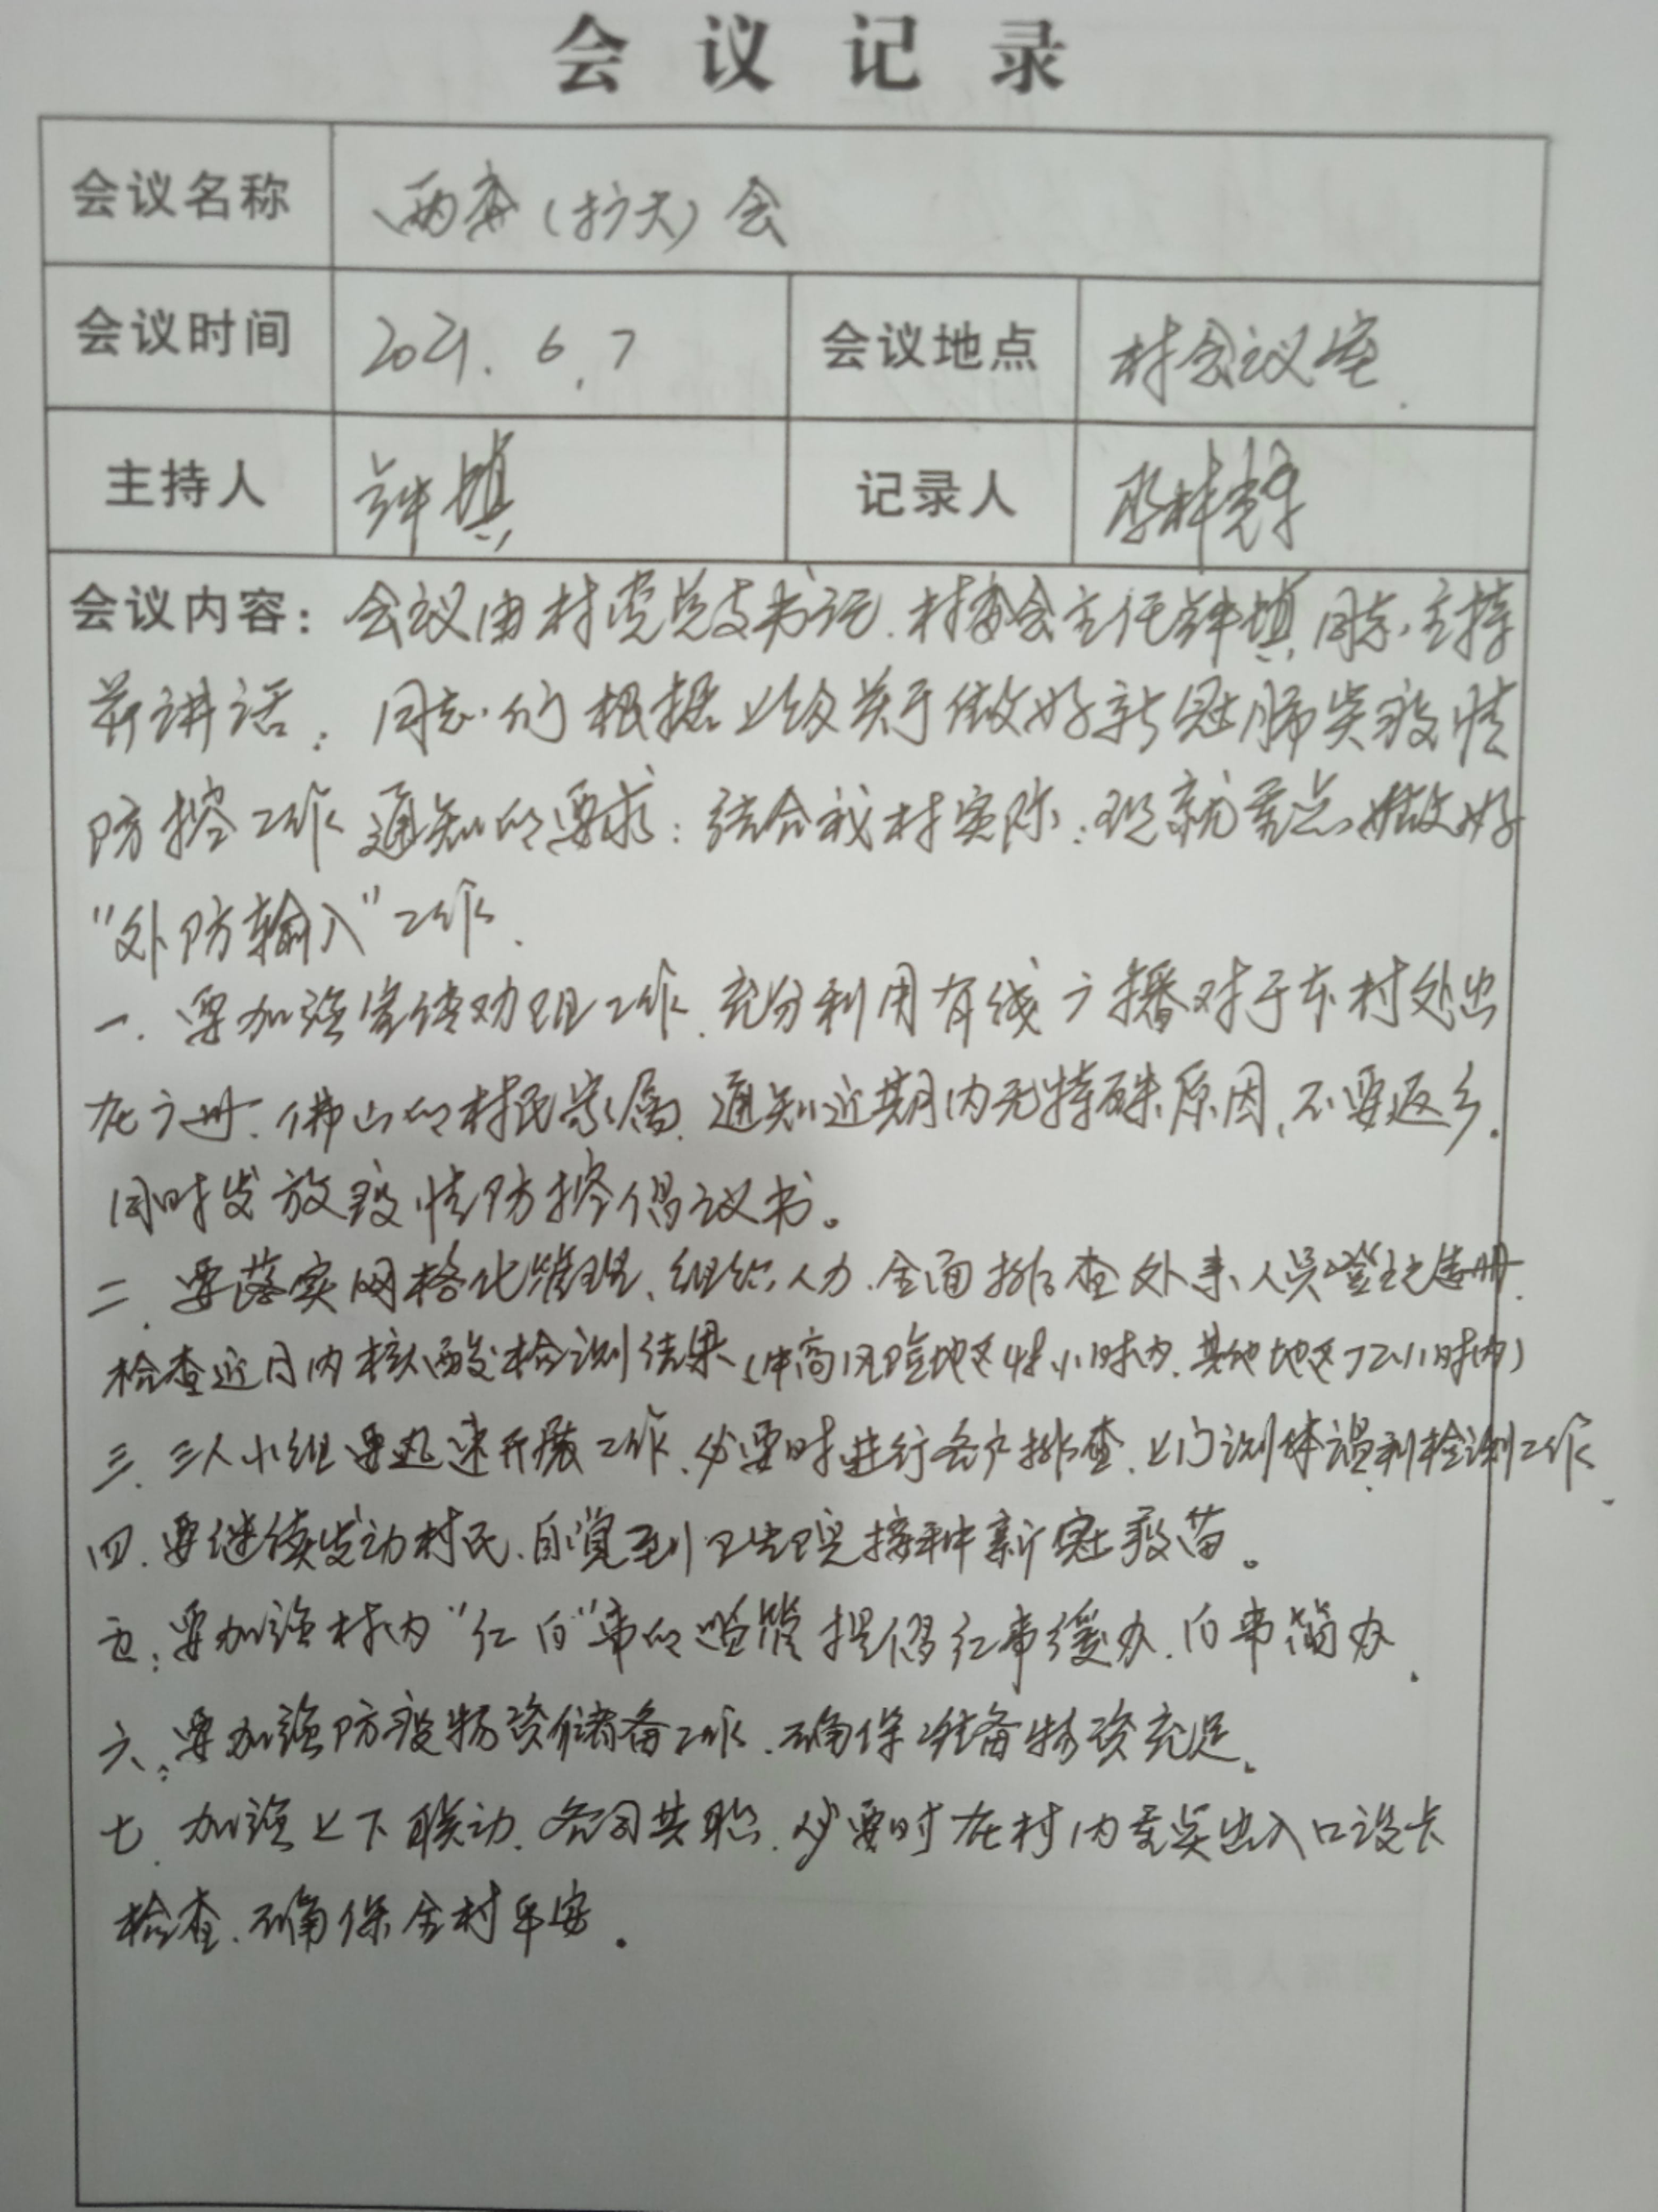 会议记录
会议名称 两委(扩大)会
会议时间 2021.6.7 会议地点 村会议室.
主持人 记录人
会议内容: 会议由村党总支书记.村委会主任 同志主持
并讲话: 同志们根据上级关于做好新冠肺炎疫情
防控工作通知的要求:结合我村实际:现就重点做好
"外防输入"工作.
一.要加强宣传劝阻工作.充分利用有线广播对于本村外出
在广州.佛山的村民家属.通知近期内无特殊原因,不要返乡.
同时发放疫情防控倡议书。
二.要落实网格化管理、组织人力.全面排查外来人员登记造册.
检查近日内核酸检测结果(中高风险地区48小时内.其他地区72小时内)
三.三人小组要迅速开展工作.必要时进行各户排查.上门测体温和检测工作.
四.要继续发动村民.自觉到卫生院接种新冠疫苗。
五:要加强村内"红白"事的监管提倡红事缓办.白事简办.
六:要加强防疫物资储备工作.确保准备物资充足.
七.加强上下联动.各司其职.必要时在村内重要出入口设卡
检查.确保全村平安.